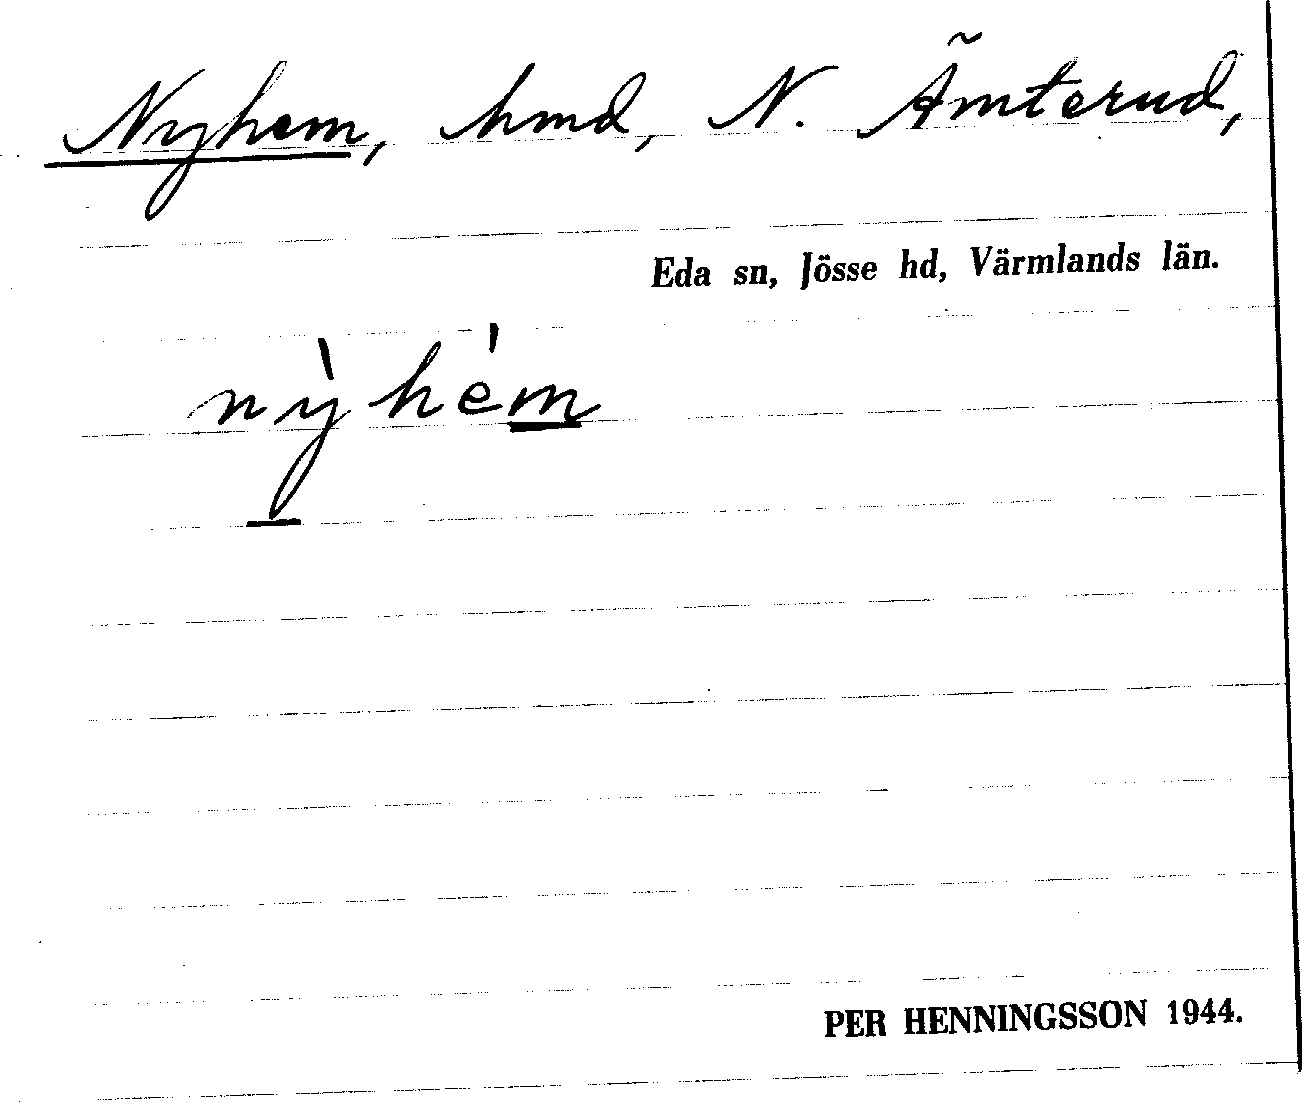 Nyhem, hmd, N. Ämterud,
Eda sn, Jösse hd, Värmlands län.
nỳhém
PER HENNINGSSON 1944.